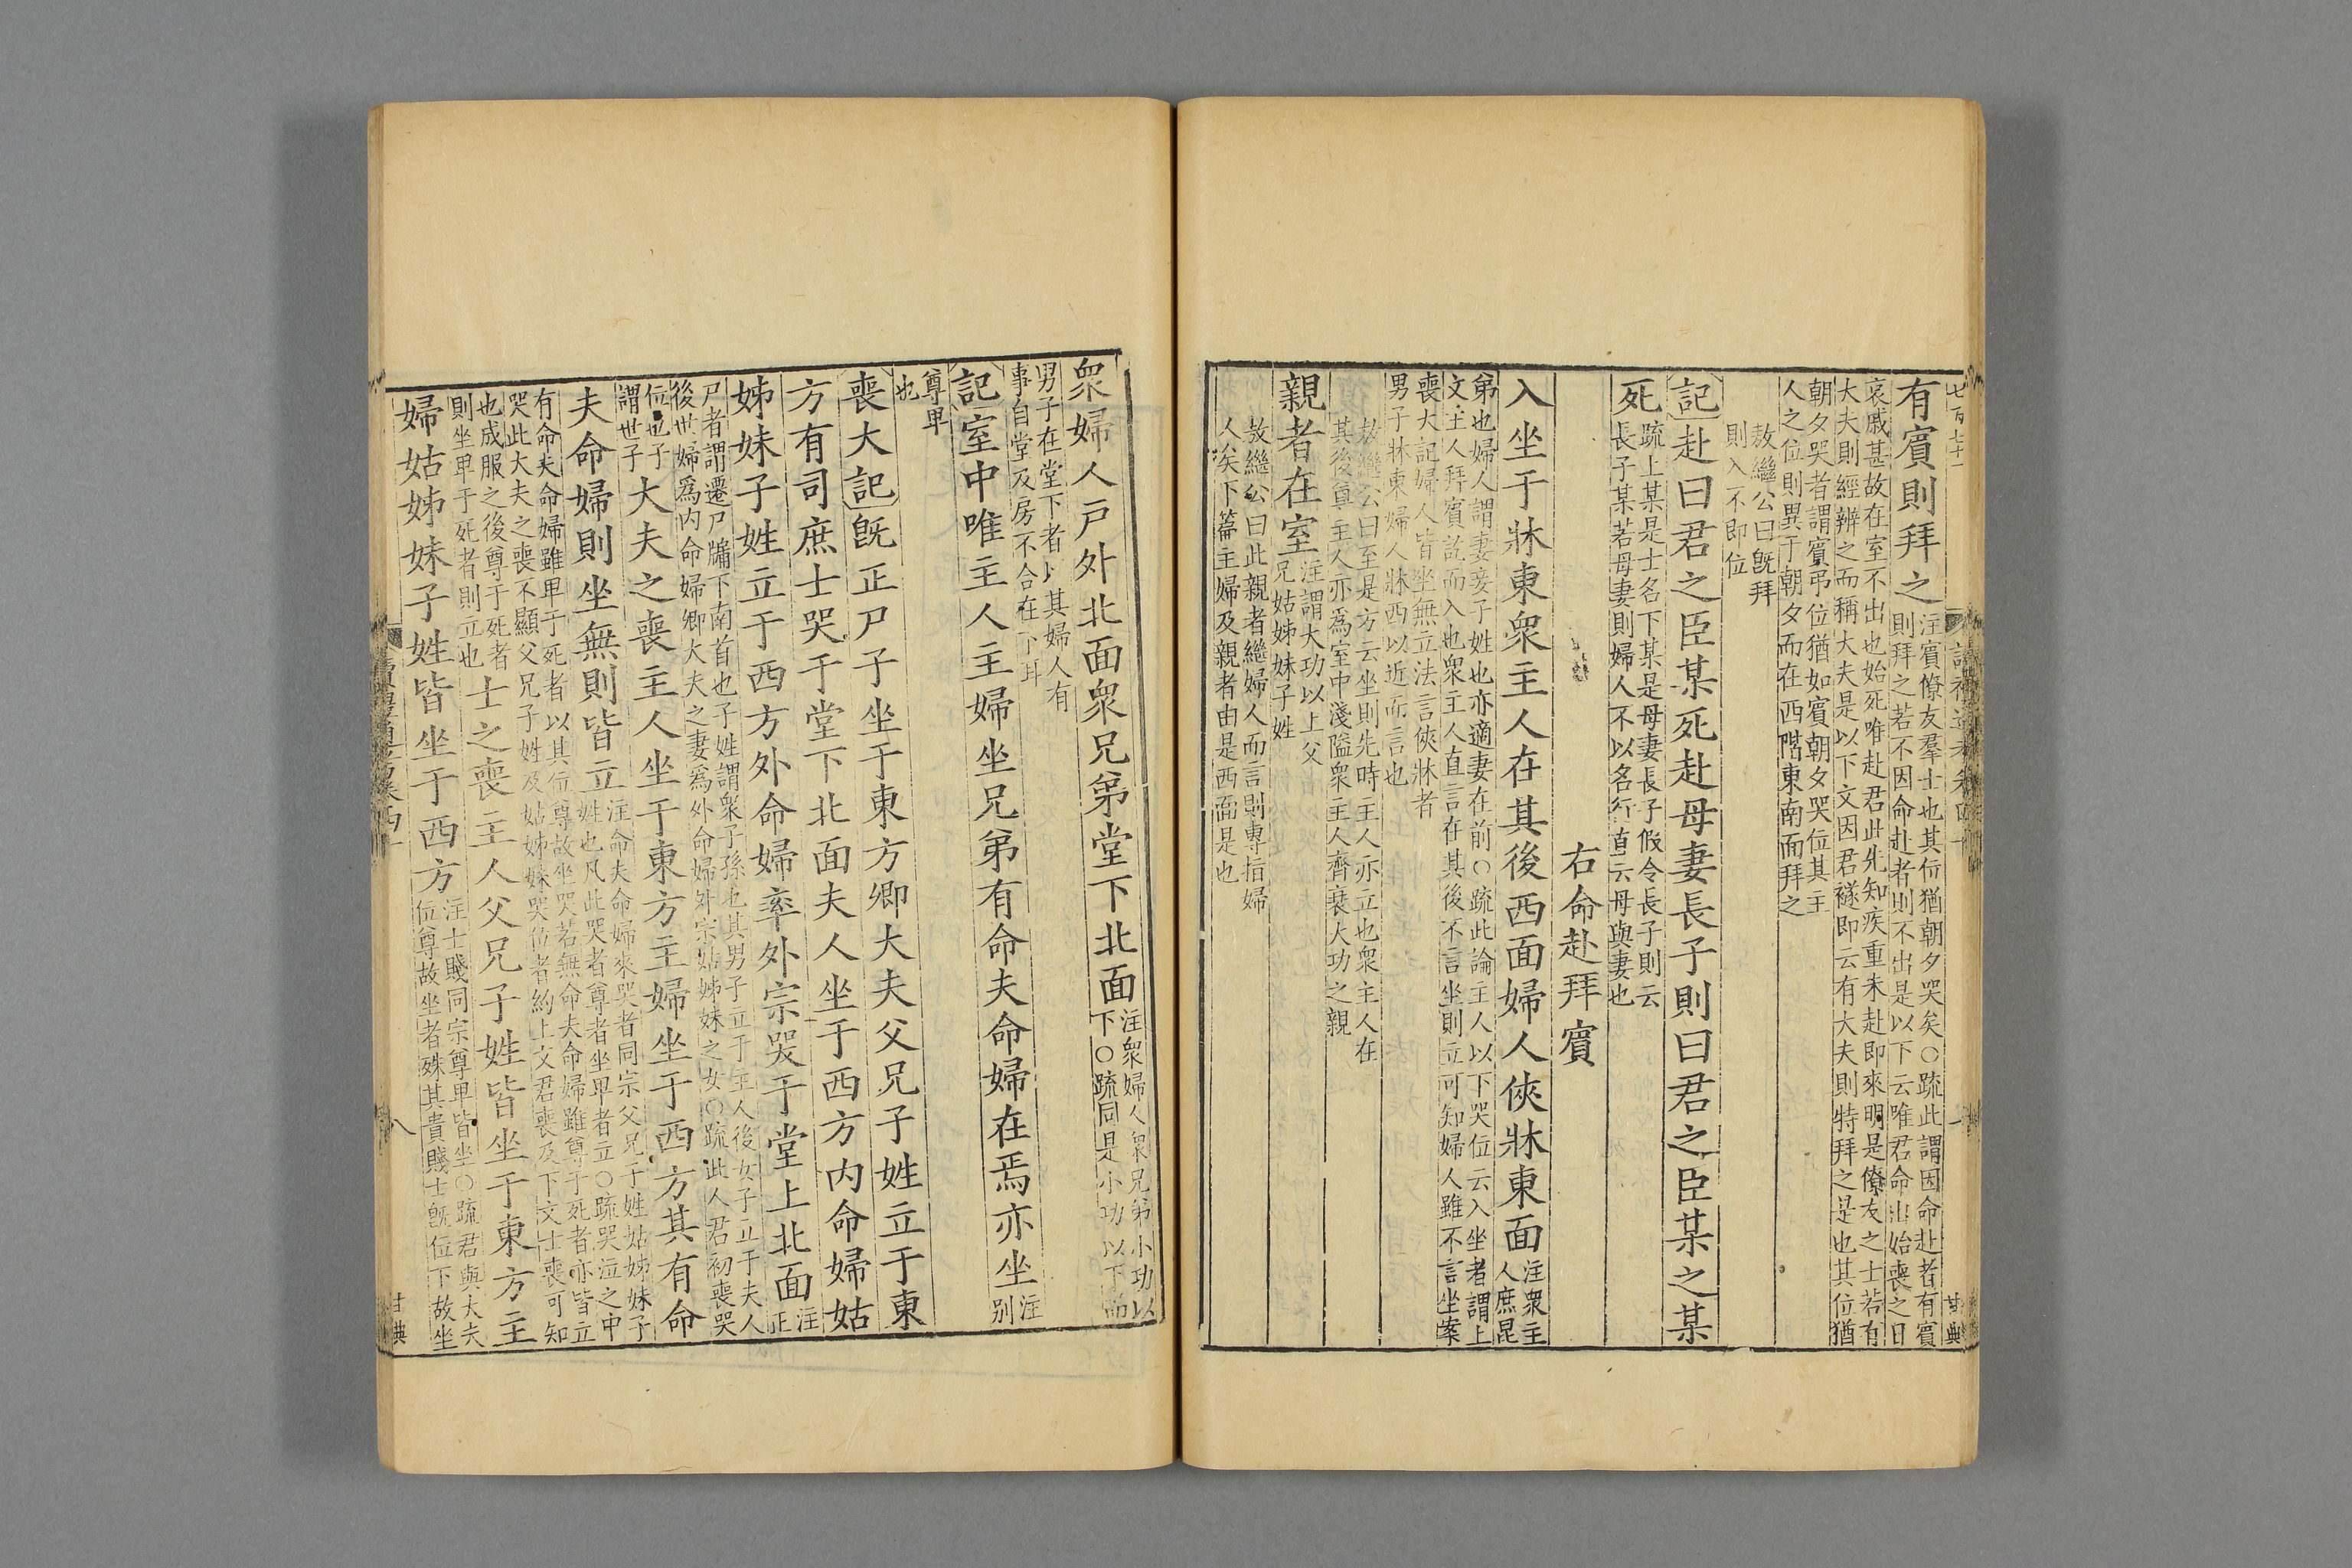 七百七十一
有賓則拜之
注賓僚友羣士也其位猶朝夕哭矣○疏此謂因命赴者有賓
則拜之若不因命赴者則不出是以下云唯君命出始喪之日
哀戚甚故在室不出也始死唯赴君此先知疾重未赴即來明是僚友之士若有
大夫則經辨之而稱大夫是以下文因君襚即云有大夫則特拜之是也其位猶
朝夕哭者謂賓弔位猶如賓朝夕哭位其主
人之位則異于朝夕而在西階東南面拜之
敖繼公曰旣拜
則入不即位
記赴曰君之臣某死赴母妻長子則曰君之臣某之某
死
疏上某是士名下某是母妻長子假令長子則云
長子某若母妻則婦人不以名行直云母與妻也
右命赴拜賓
入坐于牀東衆主人在其後西面婦人俠牀東面
注衆主
人庶昆
弟也婦人謂妻妾子姓也亦適妻在前○疏此論主人以下哭位云入坐者謂上
文主人拜賓訖而入也衆主人直言在其後不言坐則立可知婦人雖不言坐案
喪大記婦人皆坐無立法言俠牀者
男子牀東婦人牀西以近而言也
敖繼公曰至是方云坐則先時主人亦立也衆主人在
其後與主人亦爲室中淺隘衆主人齊衰大功之親
親者在室
注謂大功以上父
兄姑姊妹子姓
敖繼公曰此親者繼婦人而言則專指婦
人矣下篇主婦及親者由是西面是也
甘典
衆婦人戸外北面衆兄弟堂下北面
注衆婦人衆兄弟小功以
下○疏同是小功以下而
男子在堂下者以其婦人有
事自堂及房不合在下耳
記室中唯主人主婦坐兄弟有命夫命婦在焉亦坐
注
别
尊卑
也
喪大記旣正尸子坐于東方卿大夫父兄子姓立于東
方有司庶士哭于堂下北面夫人坐于西方内命婦姑
姊妹子姓立于西方外命婦率外宗哭于堂上北面
注
正
尸者謂遷尸牖下南首也子姓謂衆子孫也其男子立于主人後女子立于夫人
後世婦爲内命婦卿大夫之妻爲外命婦外宗姑姊妹之女○疏此人君初喪哭
位也子
謂世子
大夫之喪主人坐于東方主婦坐于西方其有命
夫命婦則坐無則皆立
注命夫命婦來哭者同宗父兄子姓姑姊妹子
姓也凡此哭者尊者坐卑者立○疏哭泣之中
有命夫命婦雖卑于死者以其位尊故坐哭若無命夫命婦雖尊于死者亦皆立
哭此大夫之喪不顯父兄子姓及姑姊妹哭位者約上文君喪及下文士喪可知
也成服之後尊于死者
則坐卑于死者則立也
士之喪主人父兄子姓皆坐于東方主
婦姑姊妹子姓皆坐于西方
注士賤同宗尊卑皆坐○疏君與大夫
位尊故坐者殊其貴賤士旣位下故坐
八
甘典